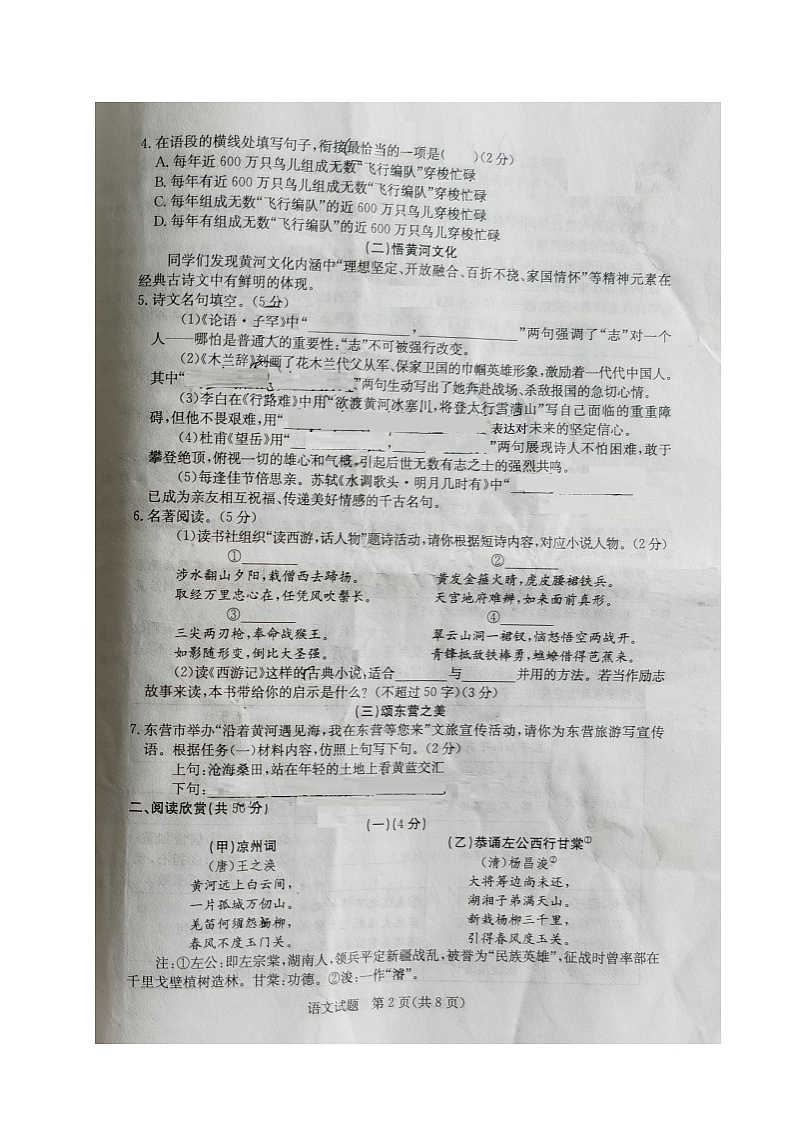 4.在语段的横线处填写句子,衔接最恰当的一项是(  )(2分)
A. 每年近 600 万只鸟儿组成无数“飞行编队”穿梭忙碌
B. 每年有近 600 万只鸟儿组成无数“飞行编队”穿梭忙碌
C. 每年组成无数“飞行编队”的近 600 万只鸟儿穿梭忙碌
D. 每年有组成无数“飞行编队”的近 600 万只鸟儿穿梭忙碌
(二)悟黄河文化
同学们发现黄河文化内涵中“理想坚定、开放融合、百折不挠、家国情怀”等精神元素在
经典古诗文中有鲜明的体现。
5.诗文名句填空。(5分)
(1)《论语·子罕》中“____________,____________”两句强调了“志”对一个
人——哪怕是普通人的重要性:“志”不可被强行改变。
(2)《木兰辞》刻画了花木兰代父从军、保家卫国的巾帼英雄形象,激励着一代代中国人。
其中“____________”两句生动写出了她奔赴战场、杀敌报国的急切心情。
(3)李白在《行路难》中用“欲渡黄河冰塞川,将登太行雪满山”写自己面临的重重障
碍,但他不畏艰难,用“____________表达对未来的坚定信心。
(4)杜甫《望岳》用“____________,____________”两句展现诗人不怕困难,敢于
攀登绝顶,俯视一切的雄心和气概,引起后世无数有志之士的强烈共鸣。
(5)每逢佳节倍思亲。苏轼《水调歌头·明月几时有》中“____________
已成为亲友相互祝福、传递美好情感的千古名句。
6.名著阅读。(5分)
(1)读书社组织“读西游,话人物”题诗活动,请你根据短诗内容,对应小说人物。(2分)
①________ ②________
涉水翻山夕阳,载僧西去蹄扬。 黄发金箍火睛,虎皮腰裙铁兵。
取经万里忠心在,任凭风吹鬃长。 天宫地府难辨,如来面前真形。
③________ ④________
三尖两刃枪,奉命战猴王。 翠云山洞一裙钗,恼怒悟空两战开。
如影随形变,倒比大圣强。 青锋抵敌铁棒勇,蟭蟟借得芭蕉来。
(2)读《西游记》这样的古典小说,适合________与________并用的方法。若当作励志
故事来读,本书带给你的启示是什么?(不超过50字)(3分)
(三)颂东营之美
7.东营市举办“沿着黄河遇见海,我在东营等您来”文旅宣传活动,请你为东营旅游写宣传
语。根据任务(一)材料内容,仿照上句写下句。(2分)
上句:沧海桑田,站在年轻的土地上看黄蓝交汇
下句:____________
二、阅读欣赏(共50分)
(一)(4分)
(甲)凉州词 (乙)恭诵左公西行甘棠①
(唐)王之涣 (清)杨昌浚②
黄河远上白云间, 大将筹边尚未还,
一片孤城万仞山。 湖湘子弟满天山。
羌笛何须怨杨柳, 新栽杨柳三千里,
春风不度玉门关。 引得春风度玉关。
注:①左公:即左宗棠,湖南人,领兵平定新疆战乱,被誉为“民族英雄”,征战时曾率部在
千里戈壁植树造林。甘棠:功德。②浚:一作“濬”。
语文试题 第2页(共8页)